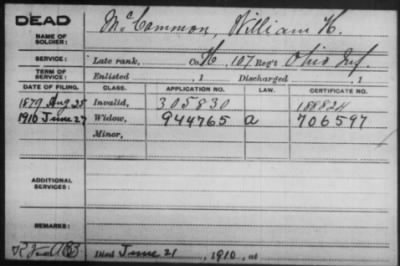 DEAD
NAME OF SOLDIER: McCommon, William H.
SERVICE: Late rank, Co. H, 107 Reg't Ohio Inf.
TERM OF SERVICE: Enlisted , 1 Discharged , 1
DATE OF FILING. CLASS. APPLICATION NO. LAW. CERTIFICATE NO.
1879 Aug 25 Invalid, 305830 188824
1910 June 27 Widow, 944765 a 706597
Minor,
ADDITIONAL SERVICES:
REMARKS:
Died June 21, 1910, at